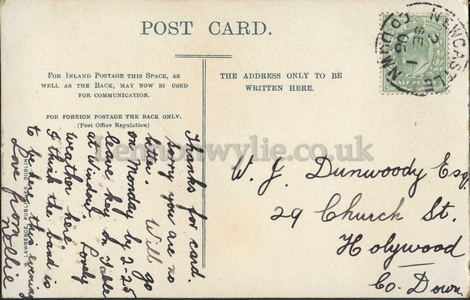 POST CARD.
FOR INLAND POSTAGE THIS SPACE, AS
WELL AS THE BACK, MAY NOW BE USED
FOR COMMUNICATION.
FOR FOREIGN POSTAGE THE BACK ONLY.
(Post Office Regulation)
THE ADDRESS ONLY TO BE
WRITTEN HERE.
NEWCASTLE
CO. DOWN
SE 1
06
HALF PENNY
Thanks for card.
sorry you are no
better. Will go
on Monday by 2-25
leave key on table
at Windsor. Lovely
weather here.
I think the band is
to be here this evening
Love from
Mollie
W. J. Dunwoody Esq.
29 Church St.
Holywood
Co. Down
LAWRENCE, PUBLISHER, DUBLIN
wylie.co.uk